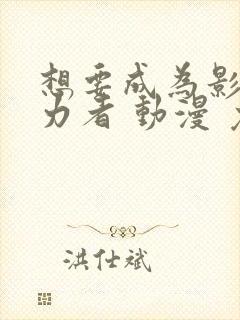 想要成為影
力者 動漫
洪仕斌